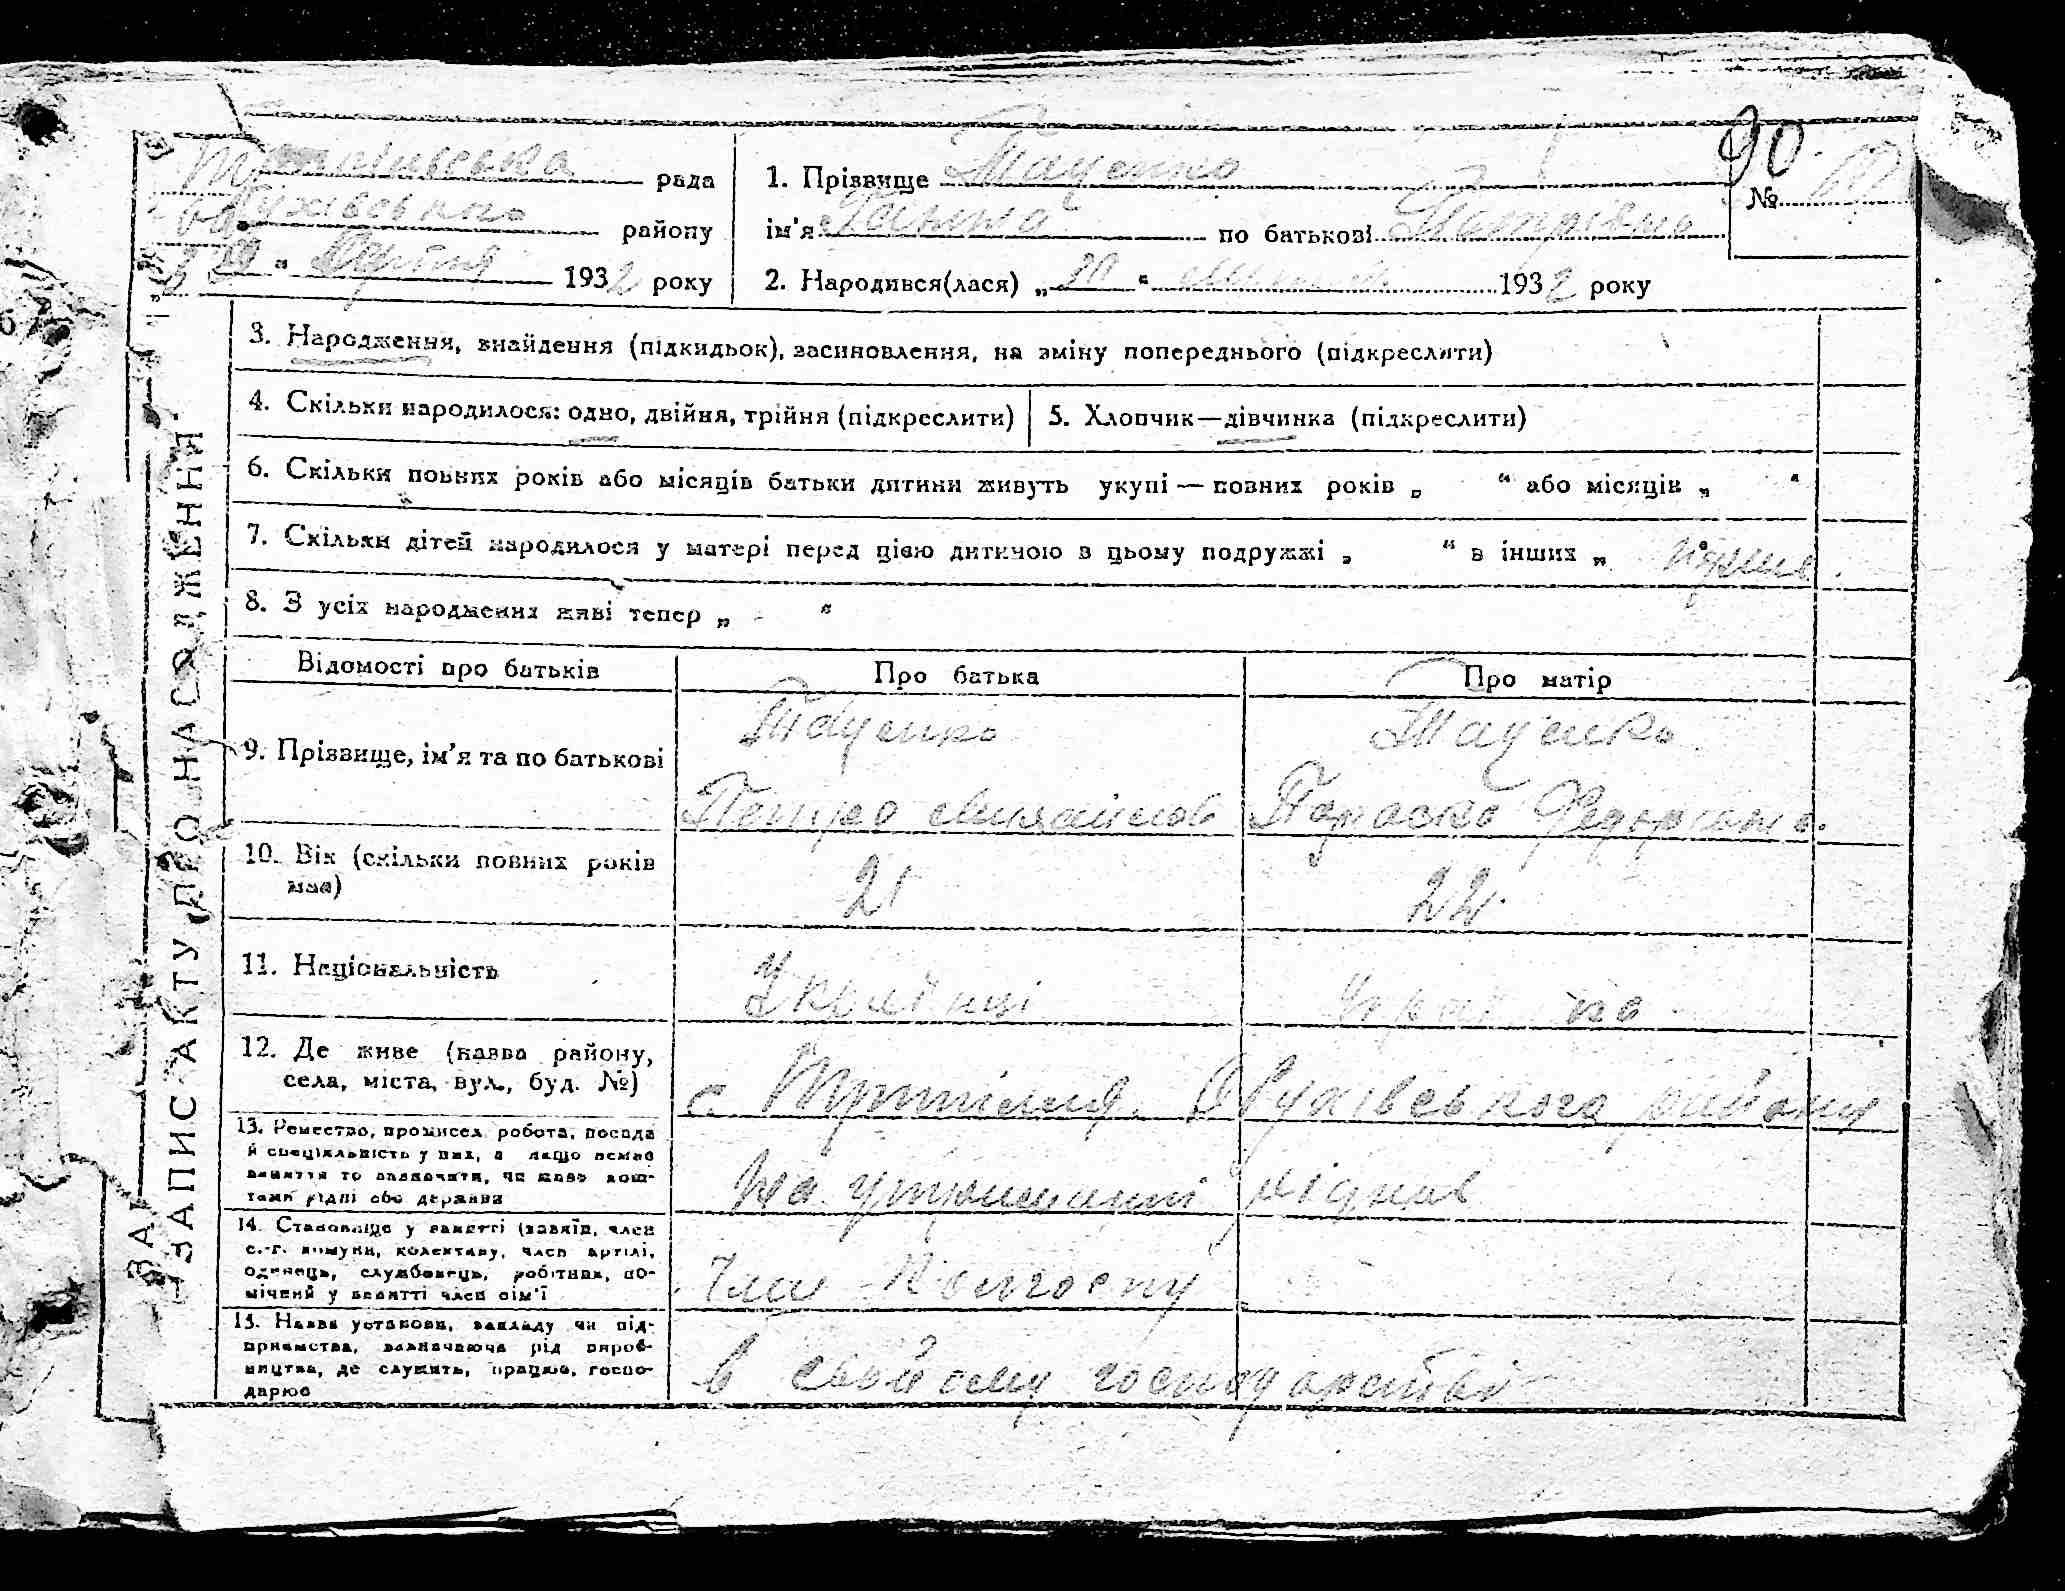 90
рада
1. Прізвище Таценко
№
району
ім'я Ганна по батькові Петрівна
1932 року
2. Народився(лася) „20“ 1932 року
3. Народження, знайдення (підкидьок), засиновлення, на зміну попереднього (підкреслити)
4. Скільки народилося: одно, двійня, трійня (підкреслити)
5. Хлопчик—дівчинка (підкреслити)
6. Скільки повних років або місяців батьки дитини живуть укупі — повних років „ “ або місяців „ “
7. Скільки дітей народилося у матері перед цією дитиною в цьому подружжі „ “ в інших „
8. З усіх народжених живі тепер „ “
ЗАПИС АКТУ ПРО НАРОДЖЕННЯ
Відомості про батьків
Про батька
Про матір
9. Прізвище, ім'я та по батькові
Таценко
Таценко
Петро
Параска Федорівна
10. Вік (скільки повних років має)
21
22
11. Національність
Українці
12. Де живе (назва району,
села, міста, вул., буд. №)
с. району
13. Ремество, промисел, робота, посада
й спеціяльність у них, а якщо немає
заняття то зазначити, чи живе кош-
тами рідні або держави
на утриманні рідних
14. Становище у занятті (хазяїн, член
с.-г. комуни, колективу, член артілі,
одинець, службовець, робітник, по-
мічний у занятті член сім'ї
Член Колгоспу
15. Назва установи, закладу чи під-
приємства, зазначаючи рід вироб-
ництва, де служить, працює, госпо-
дарює
в свойому господарстві